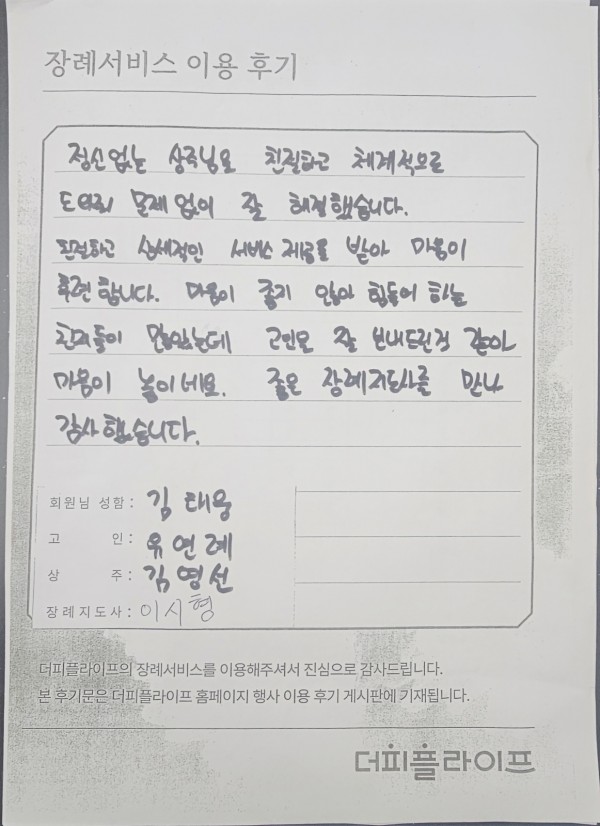 장례서비스 이용 후기
정신없는 상주님을 친절하고 체계적으로
도와줘 문제 없이 잘 해결했습니다.
친절하고 상세적인 서비스 제공을 받아 마음이
후련합니다. 마음이 좋기 않아 힘들어 하는
친지들이 많았는데 고인을 잘 보내드린것 같아
마음이 놓이네요. 좋은 장례지도사를 만나
감사했습니다.
회원님 성함: 김태웅
고 인: 유연례
상 주: 김영선
장례지도사: 이시형
더피플라이프의 장례서비스를 이용해주셔서 진심으로 감사드립니다.
본 후기문은 더피플라이프 홈페이지 행사 이용 후기 게시판에 기재됩니다.
더피플라이프